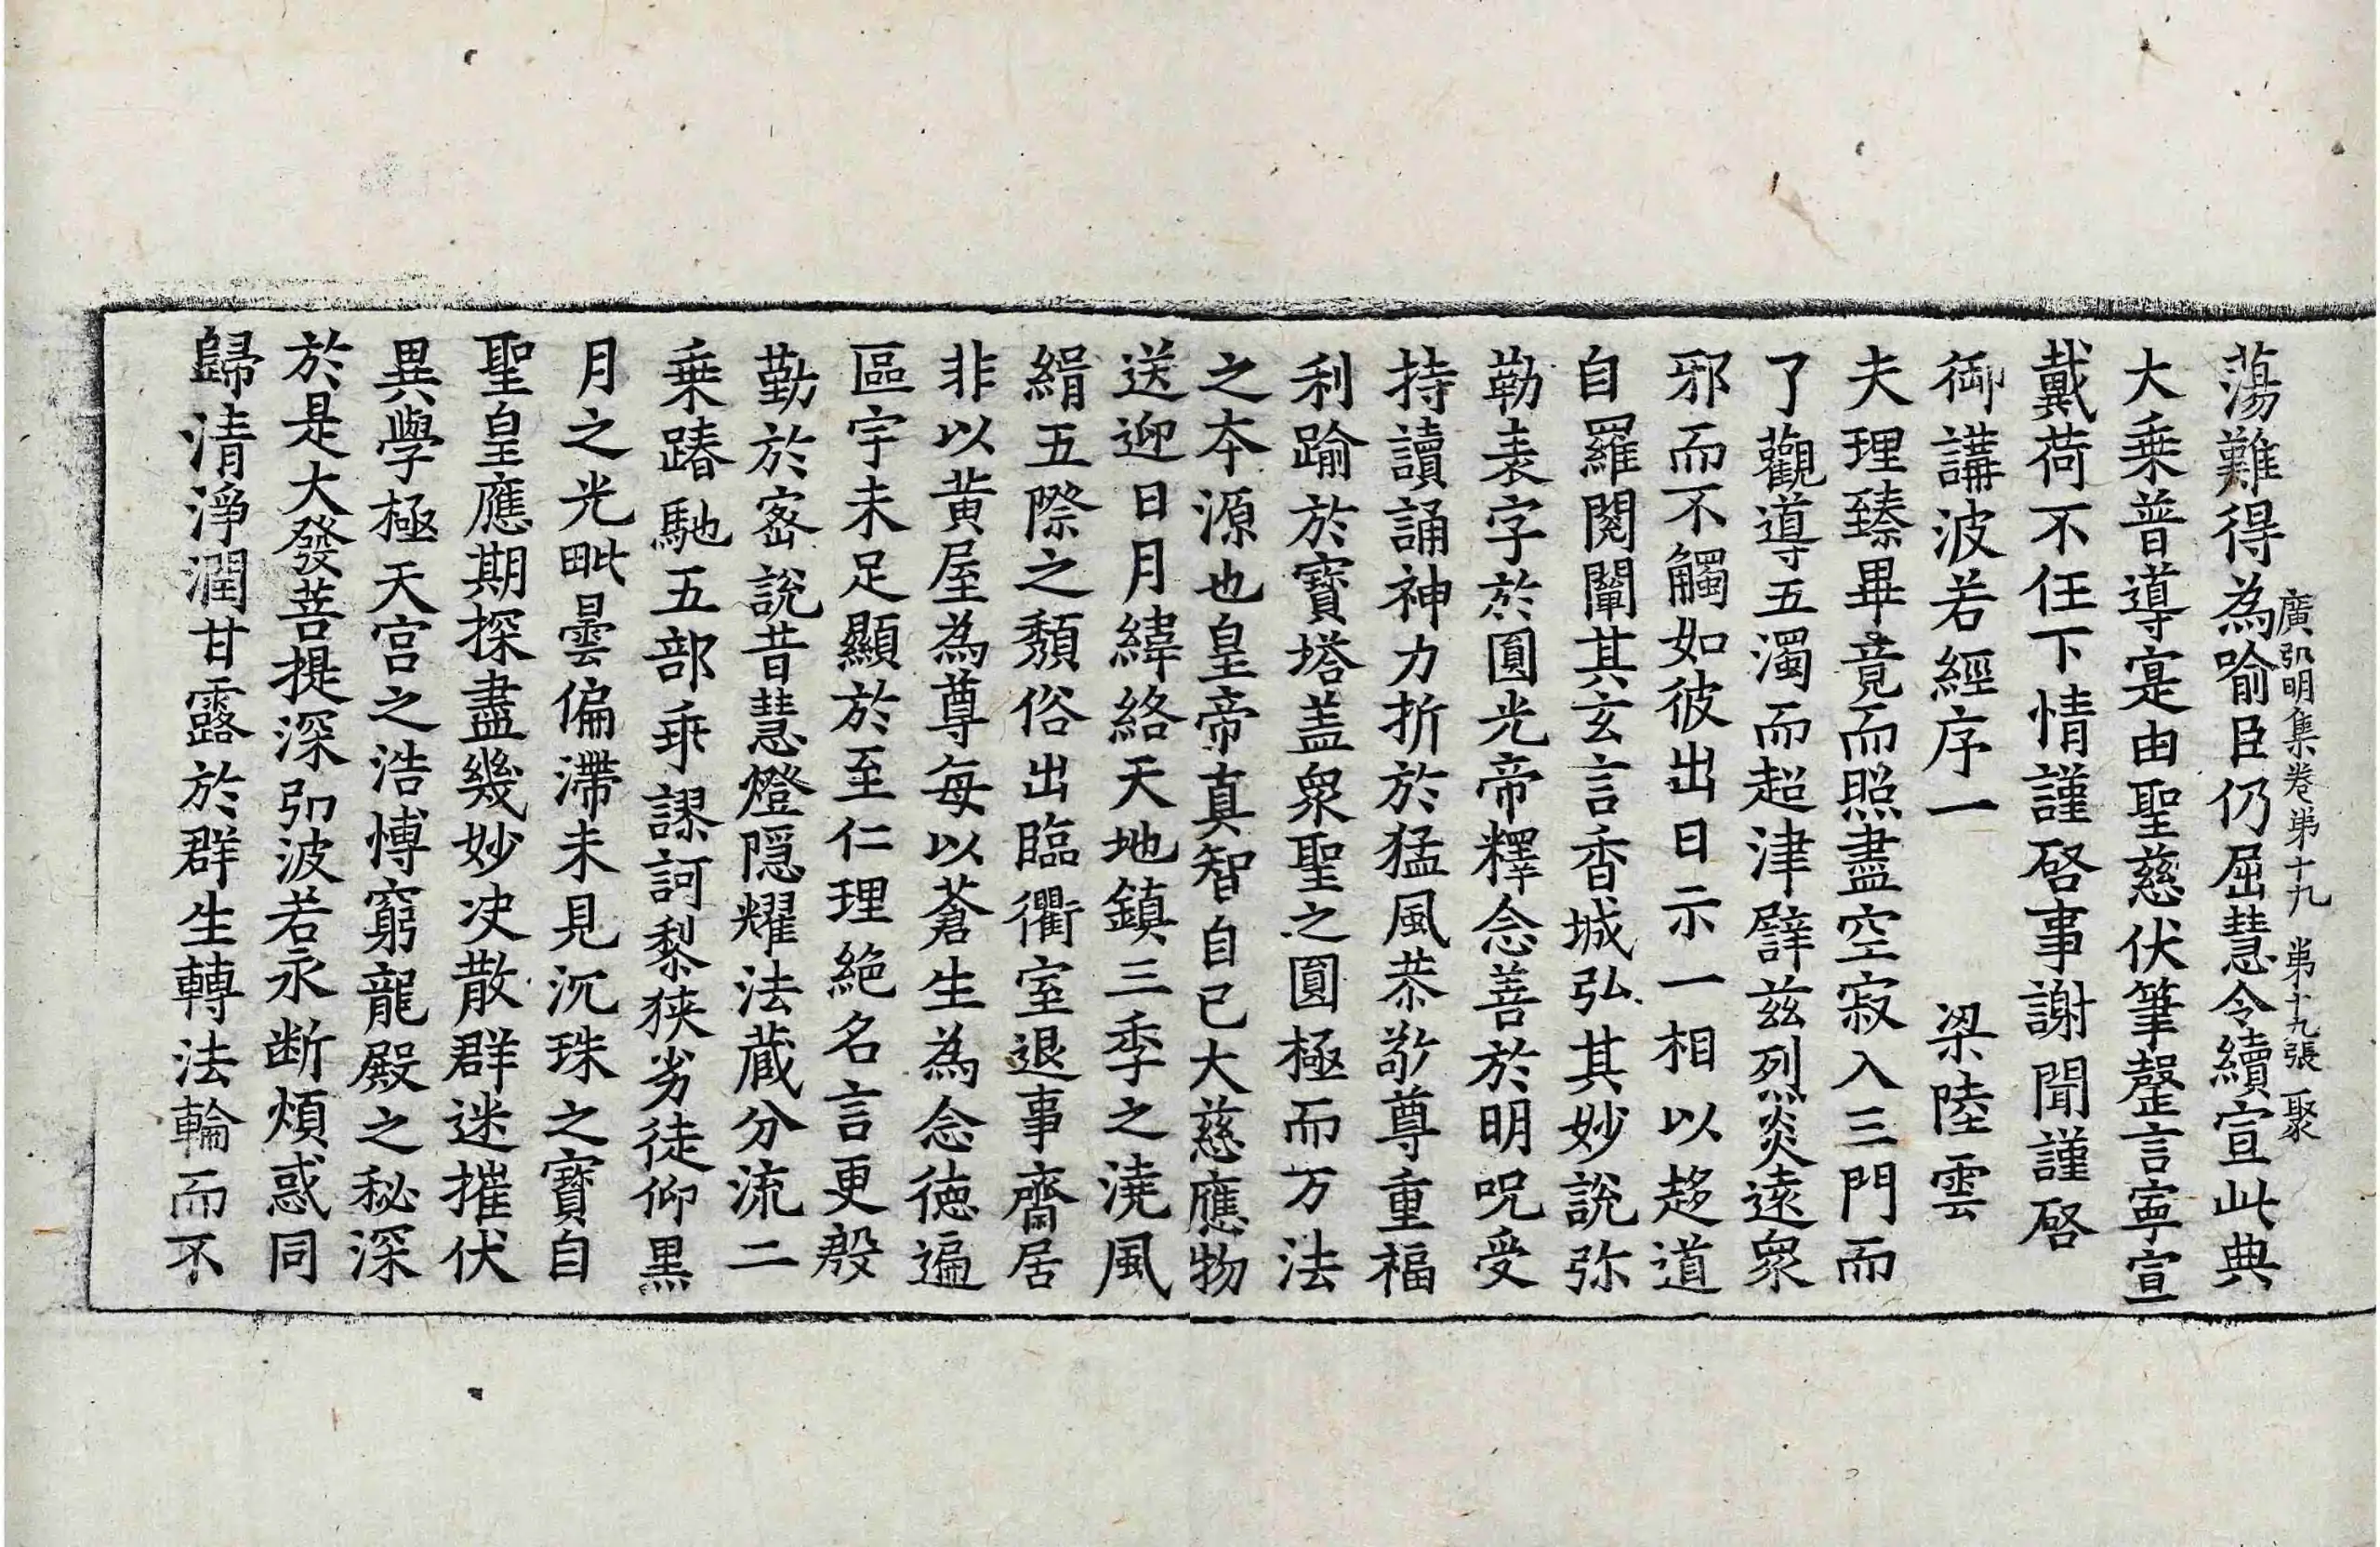 蕩難得為喻臣仍屈慧令續宣此典
廣弘明集卷苐十九 苐十九張 聚
大乗普導寔由聖慈伏筆罄言寧宣
戴荷不任下情謹啓事謝聞謹啓
御講波若經序一 梁陸雲
夫理臻畢竟而照盡空寂入三門而
了觀導五濁而超津譬兹烈炎遠衆
邪而不觸如彼出日示一相以趍道
自羅閱闡其玄言香城弘其妙說弥
勒表字於圓光帝釋念善於明呪受
持讀誦神力折於猛風恭敬尊重福
利踰於寳塔盖衆聖之圓極而万法
之夲源也皇帝真智自己大慈應物
送迎日月緯絡天地鎮三季之澆風
緝五際之頽俗出臨衢室退事齋居
非以黄屋為尊每以蒼生為念德遍
區宇未足顯於至仁理絶名言更殷
勤於宻說昔慧燈隠耀法蔵分流二
乗踳馳五部乖謬訶棃狭劣徒仰黒
月之光毗曇偏滯未見沉珠之寳自
聖皇應期探盡幾妙决散群迷摧伏
異學極天宫之浩愽窮龍殿之秘深
於是大發菩提深弘波若永断煩惑同
歸清淨潤甘露於群生轉法輪而不